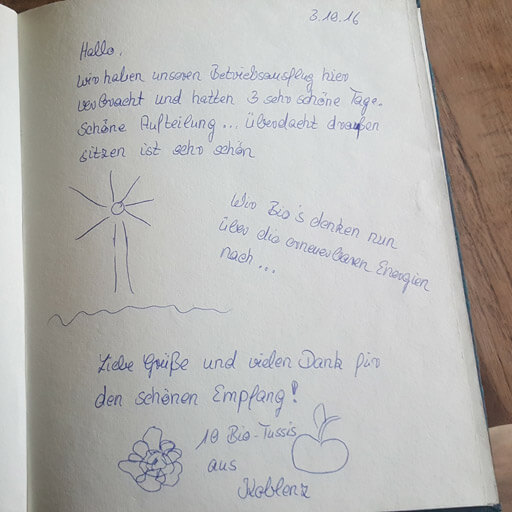 3.10.16
Hallo,
wir haben unseren Betriebsausflug hier
verbracht und hatten 3 sehr schöne Tage.
schöne Aufteilung... überdacht draußen
sitzen ist sehr schön
Wir Bio's denken nun
über die erneuerbaren Energien
nach...
Liebe Grüße und vielen Dank für
den schönen Empfang!
10 Bio-Tussis
aus
Koblenz